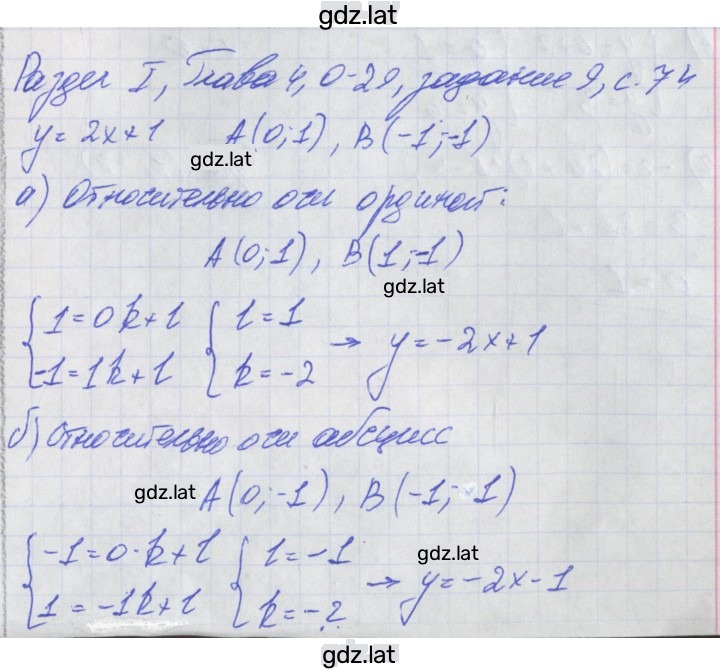 gdz.lat
Раздел I, Глава 4, О-29, задание 9, с. 74
y = 2x+1 A(0;1), B(-1;-1)
gdz.lat
а) Относительно оси ординат:
A(0;1), B(1;-1)
gdz.lat
{1=0k+l {l=1
-1=1k+l k=-2 → y=-2x+1
б) Относительно оси абсцисс
gdz.lat A(0;-1), B(-1; 1)
{-1=0·k+l {l=-1 gdz.lat
1=-1k+l k=-2 → y=-2x-1
gdz.lat